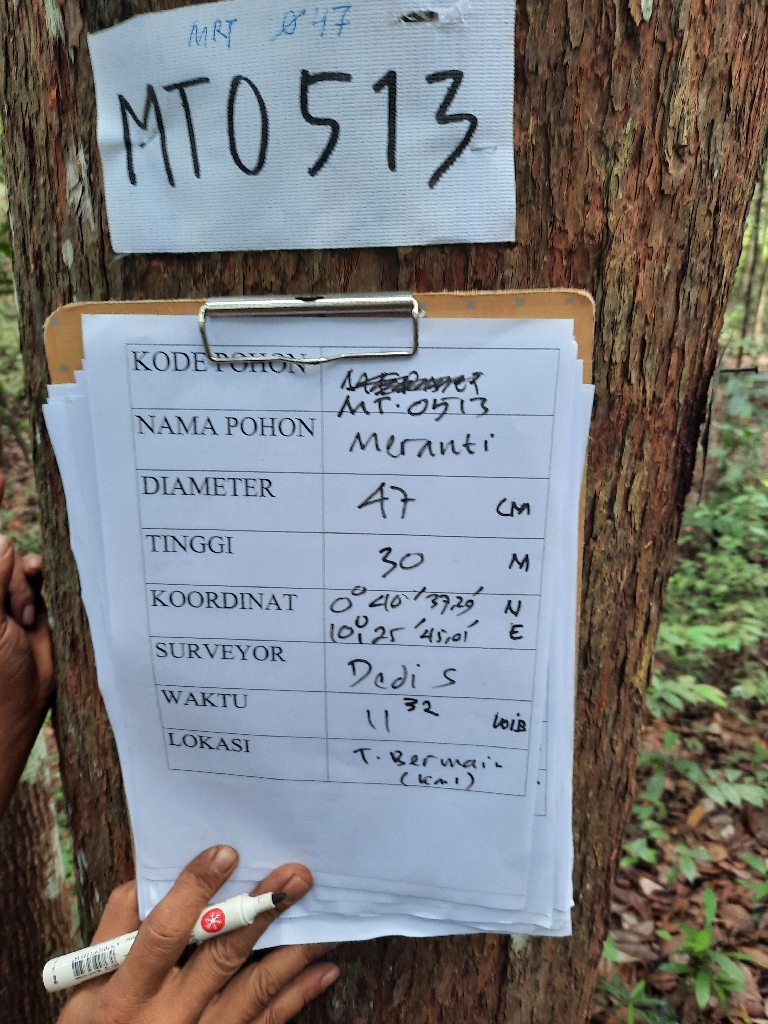 MRT Ø47
MT0513
KODE POHON
MT.0513
NAMA POHON Meranti
DIAMETER 47 CM
TINGGI 30 M
KOORDINAT 0° 40' 37,29" N
101° 25' 45,01" E
SURVEYOR Dedi S
WAKTU 11 32 WIB
LOKASI T. Bermain
(km1)